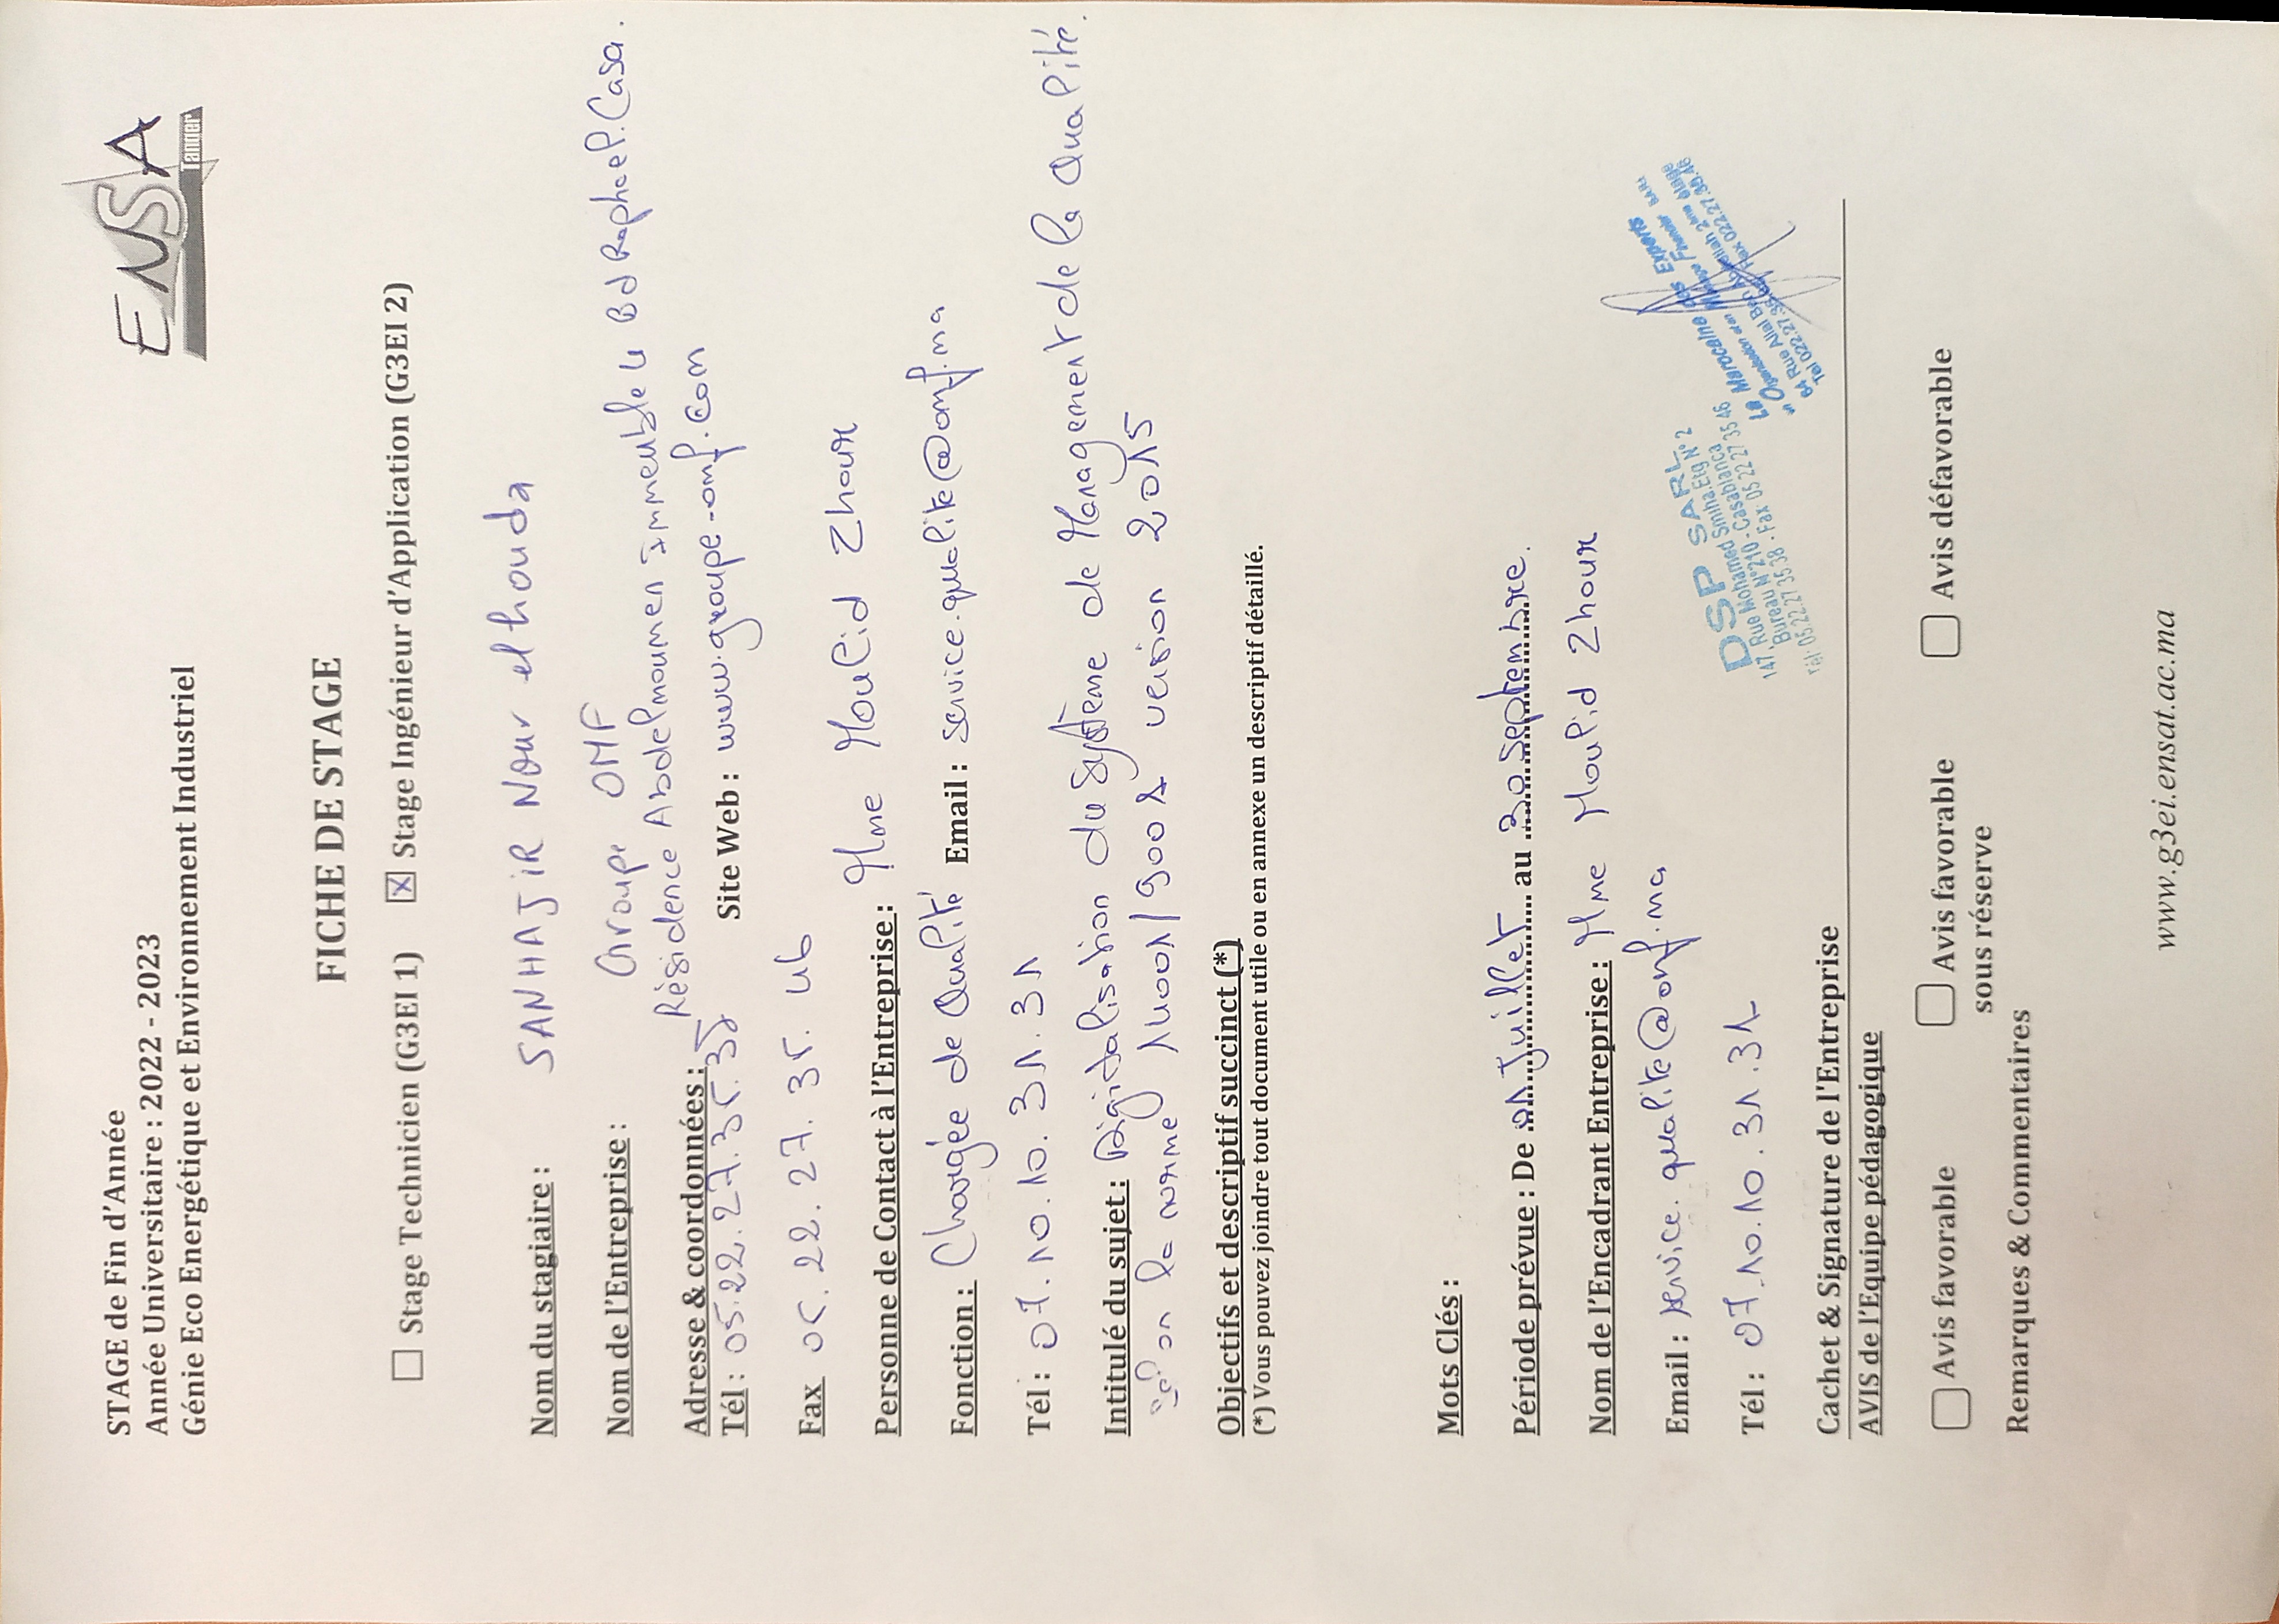 STAGE de Fin d'Année
Année Universitaire : 2022 - 2023
Génie Eco Energétique et Environnement Industriel
ENSA
Tanger
FICHE DE STAGE
Stage Technicien (G3EI 1) X Stage Ingénieur d'Application (G3EI 2)
Nom du stagiaire : SANHAJiR Nour elhouda
Nom de l'Entreprise : Groupe OMF
Adresse & coordonnées : Résidence Abdelmoumen Immeuble 4 Bd Raphael. Casa.
Tél : 05.22.27.35.35 Site Web : www.groupe-omf.com
Fax 05. 22. 27. 35. 46
Personne de Contact à l'Entreprise : Mme Moulid Zhour
Fonction : Chargée de Qualité Email : service.qualite@omf.ma
Tél : 07.10.10.31.31
Intitulé du sujet : Digitalisation du Système de Management de la Qualité
selon la norme 14001/9001 version 2015
Objectifs et descriptif succinct (*)
(*) Vous pouvez joindre tout document utile ou en annexe un descriptif détaillé.
Mots Clés :
Période prévue : De 01 Juillet au 30 septembre.
Nom de l'Encadrant Entreprise : Mme Moulid Zhour
Email : service.qualite@omf.ma
Tél : 07.10.10.31.31
Cachet & Signature de l'Entreprise
DSP SARL
147, Rue Mohamed Smiha.Etg N°2
Bureau N°210 - Casablanca
Tél: 05.22.27.35.38 - Fax 05 22 27 35 46
La Marocaine des Experts
en Organisation et en Manage Financier S.A.R.L
64 Rue Allal Ben Abdellah 2ème étage
Tel 022.27.35. Fax 022.27.35.46
AVIS de l'Equipe pédagogique
Avis favorable Avis favorable sous réserve Avis défavorable
Remarques & Commentaires
www.g3ei.ensat.ac.ma